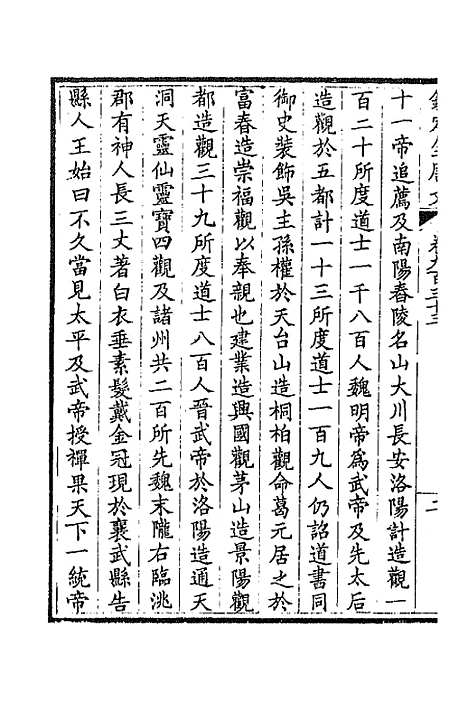 十一帝追薦及南陽舂陵名山大川長安洛陽計造觀一
百二十所度道士一千八百人魏明帝為武帝及先太后
造觀於五都計一十三所度道士一百九人仍詔道書同
御史裝飾吳主孫權於天台山造桐柏觀命葛元居之於
富春造崇福觀以奉親也建業造興國觀茅山造景陽觀
都造觀三十九所度道士八百人晉武帝於洛陽造通天
洞天靈仙靈寶四觀及諸州共二百所先魏末隴右臨洮
郡有神人長三丈著白衣垂素髮戴金冠現於襄武縣告
縣人王始曰不久當見太平及武帝授禪果天下一統帝